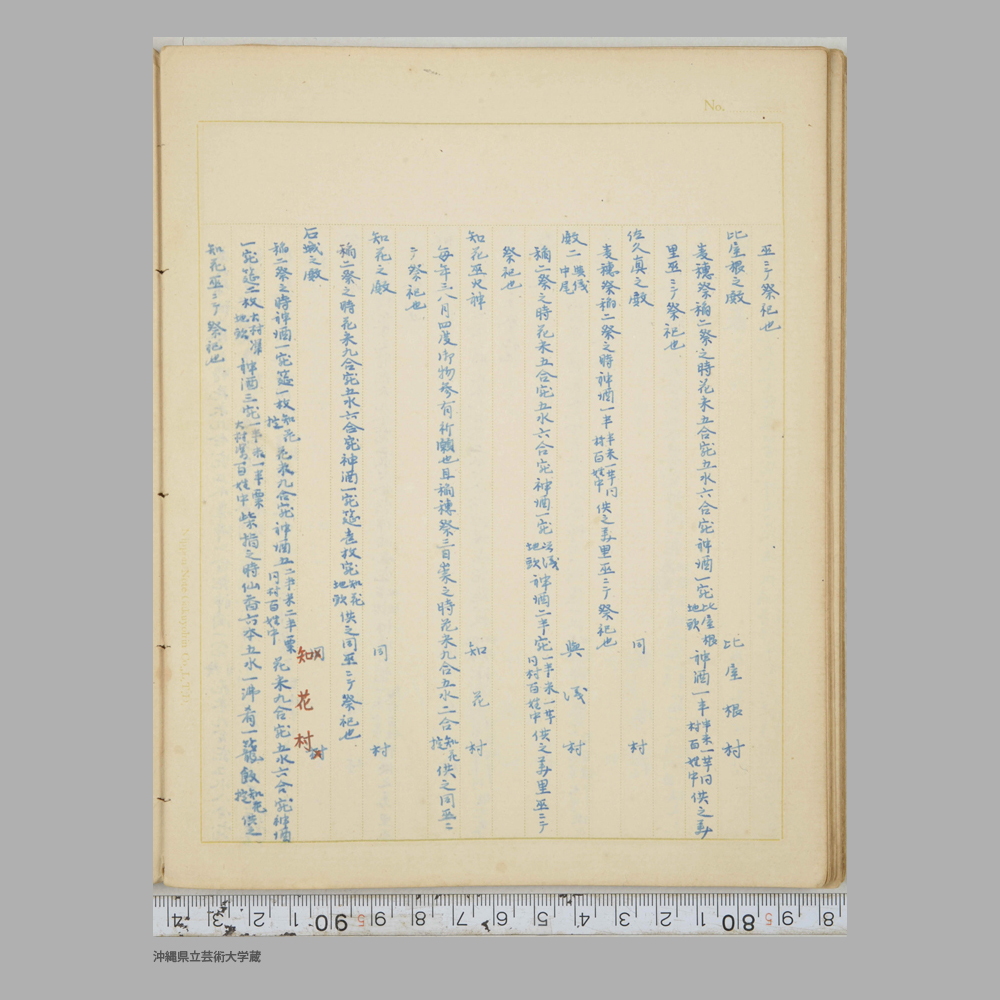 No.
巫ニテ祭祀也
比屋根之殿 比屋根村
麦穂祭稲二祭之時花米五合宛五水六合宛神酒一宛比屋根地頭神酒一半半米一半同村百姓中供之美
里巫ニテ祭祀也
佐久真之殿 同村
麦穂祭稲二祭之時神酒一半半米一半同村百姓中供之美里巫ニテ祭祀也
殿二與儀中尾 與儀村
稲二祭之時花米五合宛五水六合宛神酒一宛與儀地頭神酒二半宛一半米一半同村百姓中供之美里巫ニテ
祭祀也
知花巫火神 知花村
毎年三八月四度御物参有祈願也且稲穂祭三日崇之時花米九合五水二合知花掟供之同巫ニ
テ祭祀也
知花之殿 同村
稲二祭之時花米九合宛五水六合宛神酒一宛筵壱枚宛知花地頭供之同巫ニテ祭祀也
石城之殿 知花村
稲二祭之時神酒一宛筵一枚知花掟花米九合宛神酒五二半米二半粟同村百姓中花米九合宛五水六合宛神酒
一宛筵二枚大村渠地頭神酒三宛一半米一半粟大村渠百姓中柴指之時仙香六本五水一沸肴一籠飯知花掟供之
知花巫ニテ祭祀也
沖縄県立芸術大学蔵